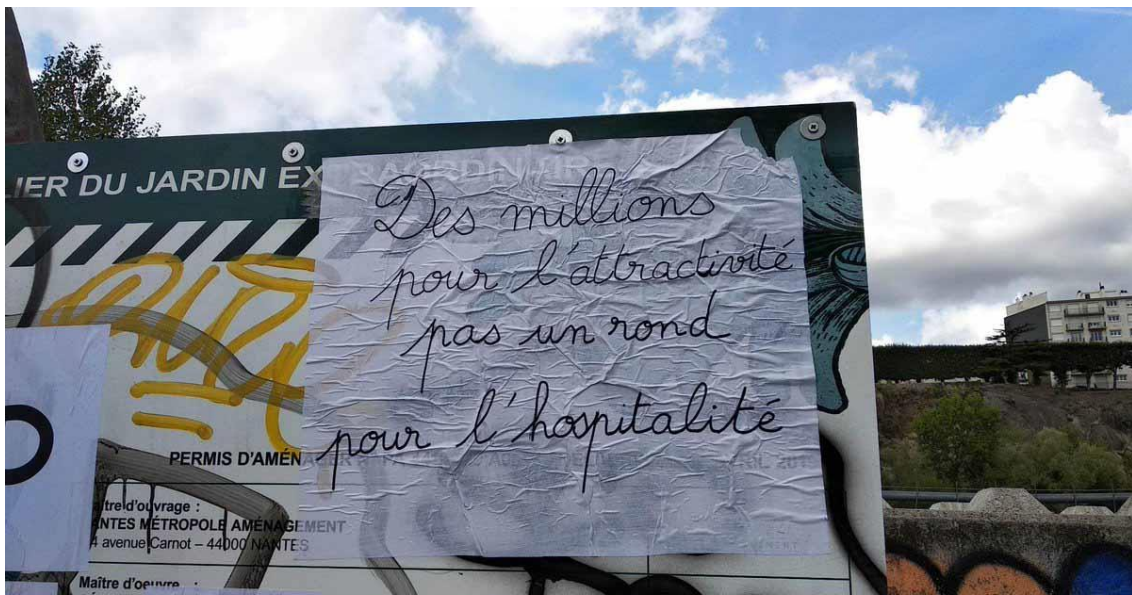 IER DU JARDIN EX
Des millions
pour l'attractivité
pas un rond
pour l'hospitalité
PERMIS D'AMÉN
aître d'ouvrage :
NTES MÉTROPOLE AMÉNAGEMENT
4 avenue Carnot – 44000 NANTES
Maître d'oeuvre :